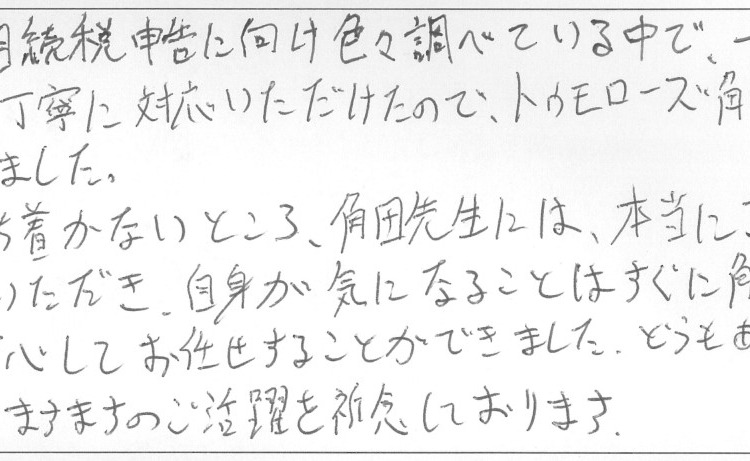 続税申告に向け色々調べている中で、一
丁寧に対応いただけたので、トゥモローズ角
ました。
着かないところ、角田先生には、本当に
いただき、自身が気になることはすぐに解
心してお任せすることができました。どうもあ
ますますのご活躍を祈念しております。